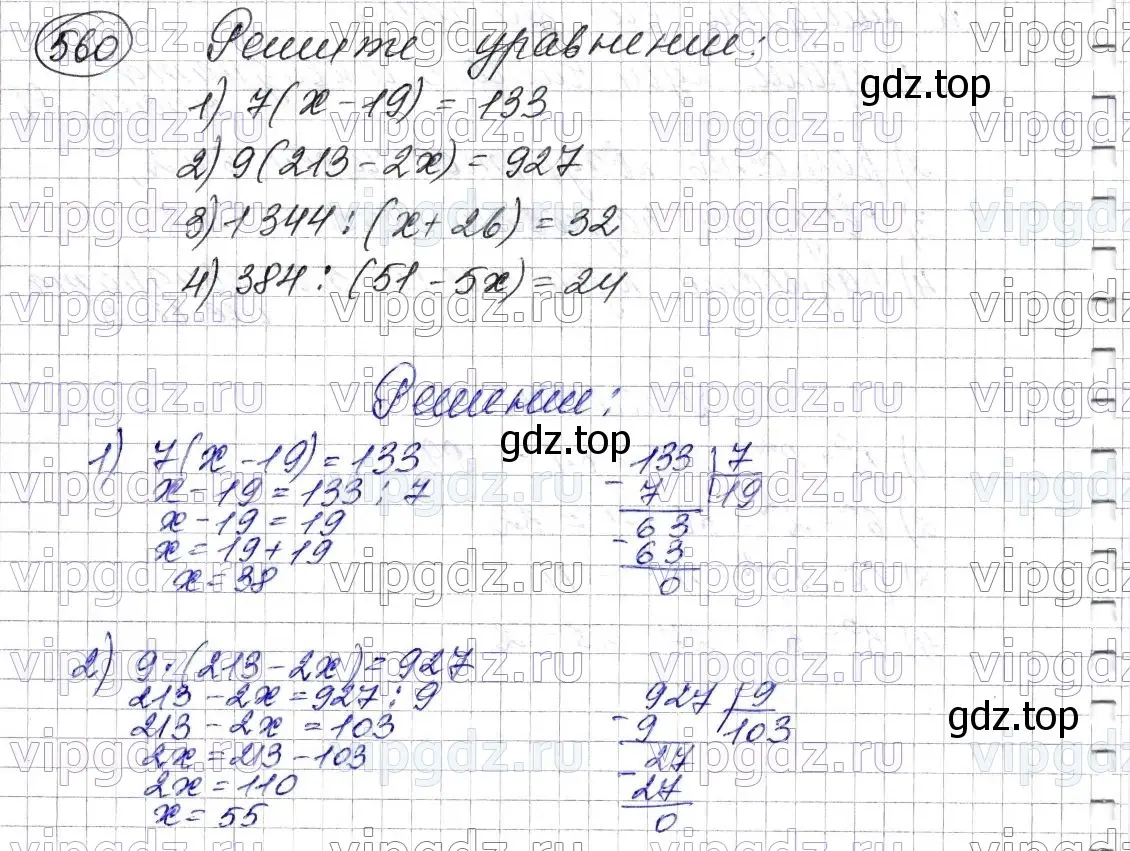 560 Решите уравнение:
gdz.top
1) 7(x-19) = 133
2) 9(213-2x) = 927
3) 1344:(x+26) = 32
4) 384:(51-5x) = 24
Решение:
gdz.top
1) 7(x-19)=133
x-19=133:7
x-19=19
x=19+19
x=38
133 | 7
- 7 | 19
63
- 63
0
2) 9·(213-2x)=927
213-2x=927:9
213-2x=103
2x=213-103
2x=110
x=55
927 | 9
- 9 | 103
27
- 27
0
gdz.top
vipgdz.ru